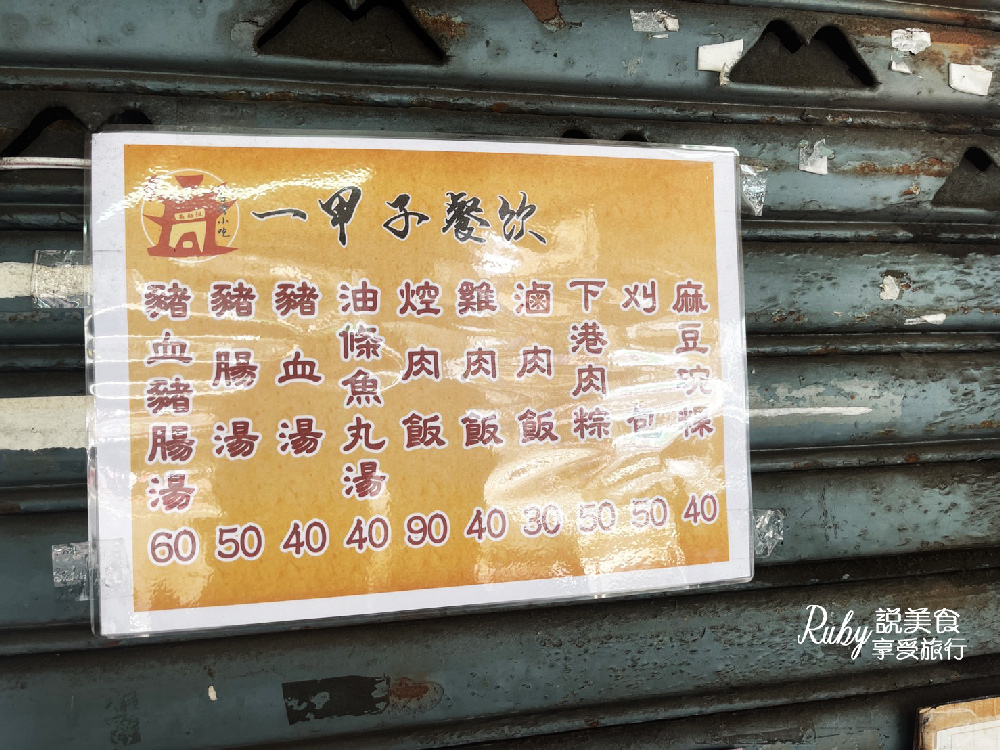 一甲子餐飲
小吃
麻豆碗粿 40
刈包 50
下港肉粽 50
滷肉飯 30
雞肉飯 40
焢肉飯 90
油條魚丸湯 40
豬血湯 40
豬腸湯 50
豬血豬腸湯 60
Ruby 說美食
享受旅行